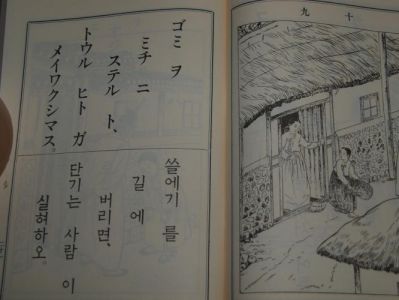 ゴミ ヲ
ミチ ニ
ステル ト、
トウル ヒト ガ
メイワクシマス。
쓸에기 를
길 에
버리면,
단기는 사람 이
실혀하오.
十九